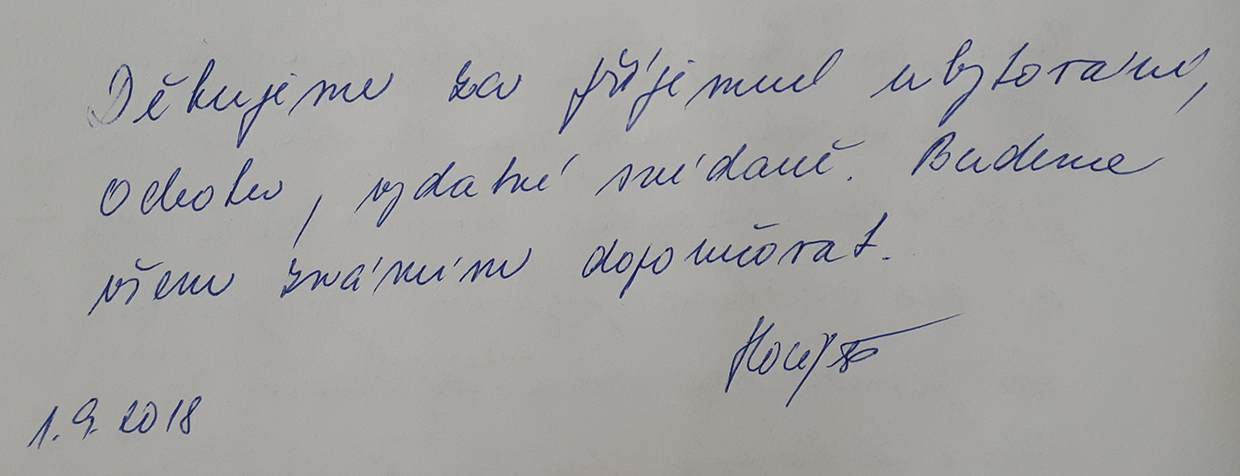 Děkujeme za příjemné ubytování,
Ochotu, vydatné snídaně. Budeme
všem známým doporučovat.
1.9.2018